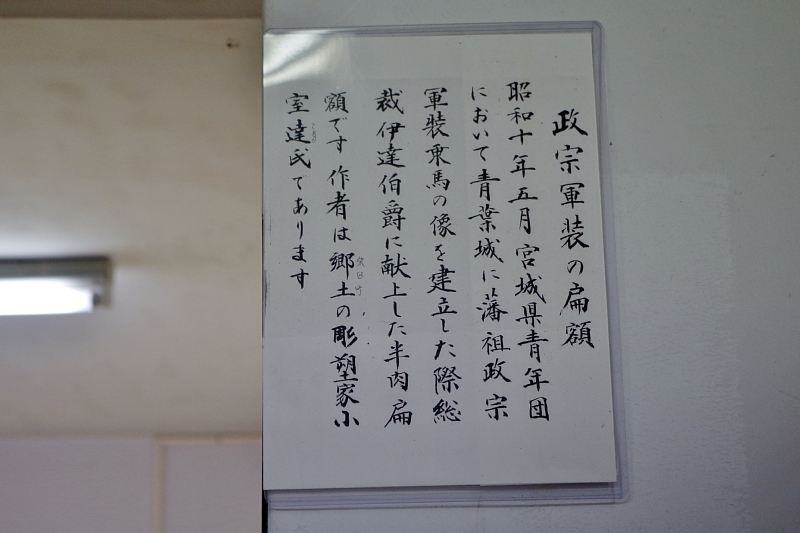 政宗軍装の扁額
昭和十年五月宮城県青年団
において青葉城に藩祖政宗
軍装乗馬の像を建立した際総
裁伊達伯爵に献上した半肉扁
額です作者は郷土の彫塑家小
室達氏てあります